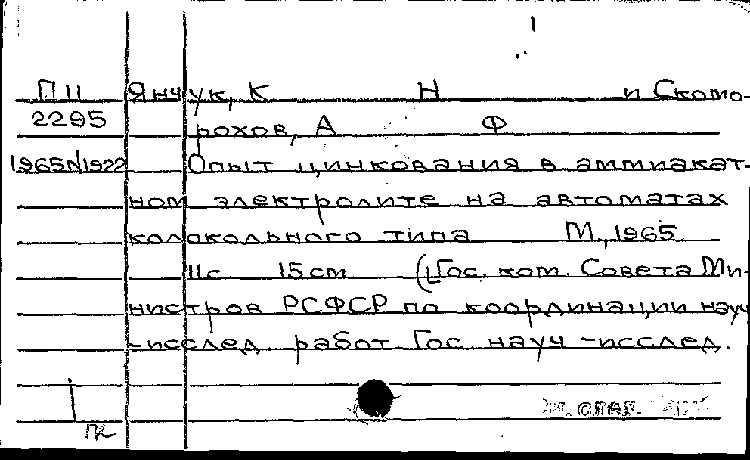 1
П 11 Янчук, К Н и Скомо-
2295 рохов, А Ф
1965N1922 Опыт цинкования в аммиакат-
ном электролите на автоматах
колокольного типа М., 1965
11с 15см (Гос. ком. Совета Ми-
нистров РСФСР по координации науч
-исслед. работ Гос. науч -исслед.